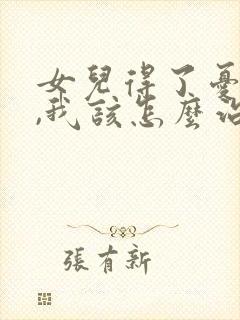 女兒得了憂
,我該怎麼
張有新